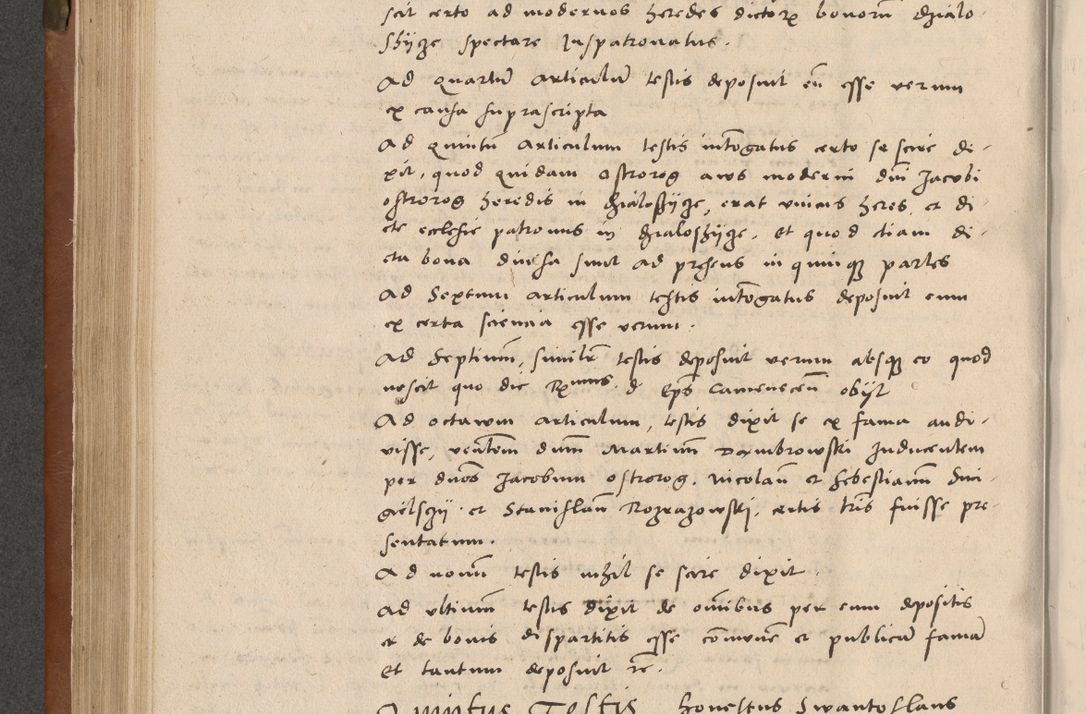 scit certo ad modernos heredes dictorꝝ bonorum dzialo-
shÿcze spectare Iuspatronatus.
Ad quartũ articulũ testis deposuit eũ esse verum
ex causa suprascripta
Ad quintũ articulum testis intõgatus certo se scire di-
xit, quod quidam Ostrorog avus moderni dñi Jacobi
ostrorog heredis in dzialoshÿcze, erat unicus heres et di-
cte ecclesie patronus in dzialoshÿcze. et quod etiam di-
cta bona divisa sunt ad presens in quinqꝫ partes
Ad Sextum articulum testis intõgatus deposuit eum
ex certa sciencia esse verum.
Ad Septimũ, similr̃ testis deposuit verum absqꝫ eo quod
nescit quo die Rx̃mus d. Ep̃s Camenecen̄ obÿt
Ad octavum articulum, testis dixit se ex fama audi-
visse, venr̃lem dñum Martinũ Dambrowski Inducentem
per dños Jacobum ostrorog. Nicolaũ et Sebestianũ Smi-
gielsczÿ et Stanislaũ Rozrazowskj. certis lr̃is fuisse pre-
sentatum.
Ad nonũ testis nihil se scire dixit.
Ad ultimũ testis dixit de omĩbus per eum depositis
et de bonis dispartitis esse com̃unẽ et publicã famã
et tantum deposuit rẽ.
Quintus Testis honestus Swantoslaus